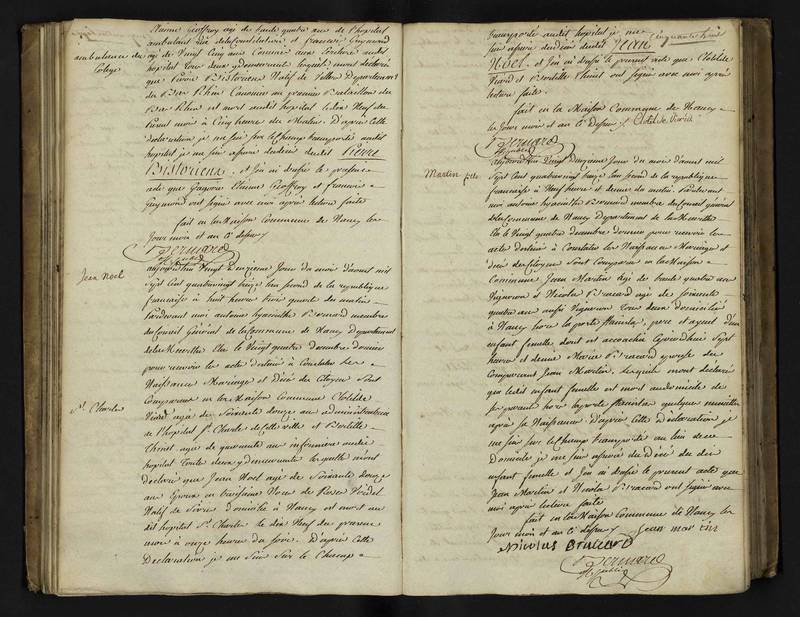 Etienne Geoffroy agé de trente quatre ans de l'hopital
ambulant dit de la Constitution et francois Guymond
ambulance du
College
agé de Vingt Cinq ans Commis aux Ecritures audit
hopital tous deux y demeurant lesquels mont declaré
que Pierre Bistorieux Natif de Departement
du Bas Rhin Canonier au premier Bataillon du
Bas Rhin est mort audit hopital le dix Neuf du
Present mois à Cinq heures du Matin. D'après Cette
declaration je me suis sur le Champ transporté audit
hopital je me suis assuré du deces dudit Pierre
Bistorieux, et j'en ai dressé le present
acte que Etienne Geoffroy et francois
Guymond ont signé avec moi après lecture faite
fait en la Maison Commune de Nancy les
Jour mois et an Ci dessus
Bernard
off. public
Jean Noel
aujourdhui Vingt deuxieme Jour du mois d'aout mil
Sept Cent quatrevingt treize l'an second de la republique
française à huit heures trois quarts du matin
Pardevant moi antoine hyacinthe Bernard membre
du Conseil Général de la Commune de Nancy departement
de la Meurthe Elu le Vingt quatre decembre dernier
pour recevoir les actes destinés à Constater les
Naissances Mariages et Décès des Citoyens Sont
Comparus en la Maison Commune Clotilde
St. Charles
Viard agée de Soixante douze ans administratrice
de l'hopital St. Charles de Cette ville et
Thinet agée de quarante ans infirmiere audit
hopital toutes deux y demeurantes lesquelles m'ont
declaré que Jean Noel agé de Soixante douze
ans Epoux en troisieme Noces de Rose
Natif de domicilié à Nancy est mort au
dit hopital St. Charles le dix Neuf du present
mois à onze heures du soir. D'après Cette
Declaration je me Suis Sur le Champ
transporté audit hopital je me
suis assuré du deces dudit Jean
Noel. et j'en ai dressé le present acte que Clotilde
Viard et Thinet ont signé avec moi après
lecture faite.
fait en la Maison Commune de Nancy
les Jour mois et an Ci Dessus Clotilde Viard
Bernard
off. public
Martin fille
aujourdhui Vingt Deuxieme Jour du mois d'aout mil
Sept Cent quatrevingt treize l'an second de la republique
française à Neuf heures et demie du matin Pardevant
moi antoine hyacinthe Bernard membre du Conseil général
de la Commune de Nancy Departement de la Meurthe
Elu le Vingt quatre decembre dernier pour recevoir les
actes destinés à Constater les Naissances Mariages et
décès des Citoyens Sont Comparus en la Maison
Commune Jean Martin agé de trente quatre ans
Vigneron et Nicolas Bracard agé de soixante
quatre ans aussi Vigneron tous deux domiciliés
à Nancy hors la porte Stanislas, pere et ayeul d'un
enfant femelle dont est accouchée Cejourdhui Sept
heures et demie Marie Bracard epouse du
Comparant Jean Martin. Lesquels m'ont déclaré
que ledit enfant femelle est mort au domicile de
ses parents hors la porte Stanislas quelques minutes
après sa Naissance. d'après Cette Déclaration je
me suis sur le Champ transporté au lieu de ce
domicile je me suis assuré du Décès du dit
enfant femelle et j'en ai dressé le present acte que
Jean Martin et Nicolas Bracard ont signé avec
moi après lecture faite
fait en la Maison Commune de Nancy les
Jour mois et an Ci dessus jean martin
Nicolas Bracard
Bernard
off. public